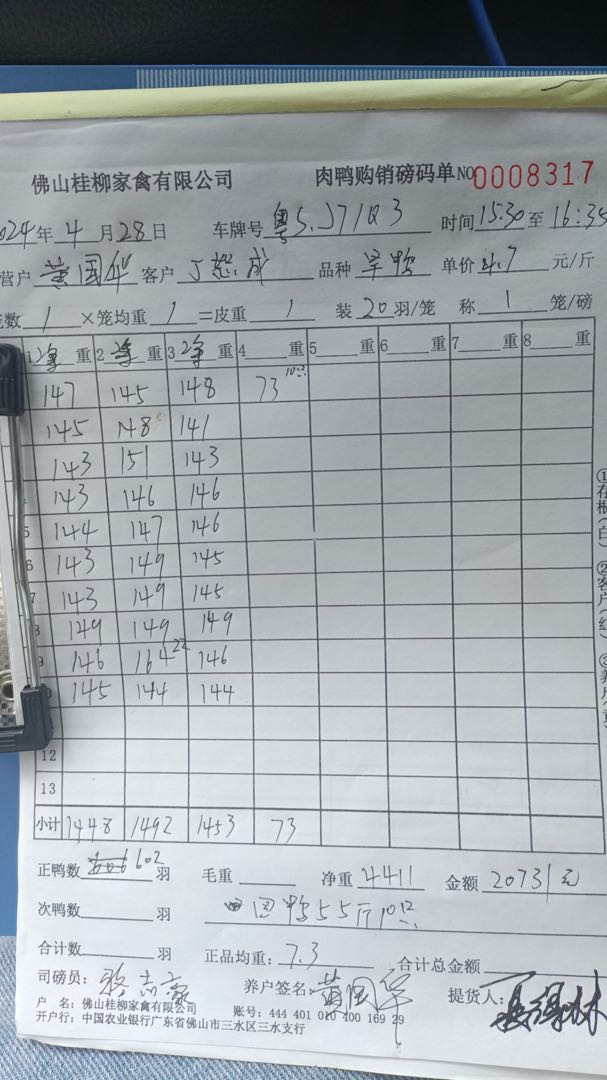 佛山桂柳家禽有限公司 肉鸭购销磅码单 NO 0008317
024年 4 月 28 日 车牌号 粤S.J71Q3 时间 15:30 至 16:35
营户 黄国华 客户 品种 单价 4.7 元/斤
笼数 1 ×笼均重 1 =皮重 1 装 20 羽/笼 称 1 笼/磅
1 净重 2 净重 3 净重 4 重 5 重 6 重 7 重 8 重
147 145 148 73 10只
145 148 141
143 151 143
143 146 146
5 144 147 146
6 143 149 145
7 143 149 145
8 149 149 149
9 146 164 22 146
145 144 144
12
13
小计 1448 1492 1453 73
正鸭数 602 羽 毛重 净重 4411 金额 20731元
次鸭数 羽 回鸭55斤10只
合计数 羽 正品均重: 7.3 合计总金额
司磅员: 养户签名: 黄国华 提货人:
户 名: 佛山桂柳家禽有限公司 账号: 444 401 010 400 169 29
开户行: 中国农业银行广东省佛山市三水区三水支行
①存根(白) ②客户(红) ③养户(黄)